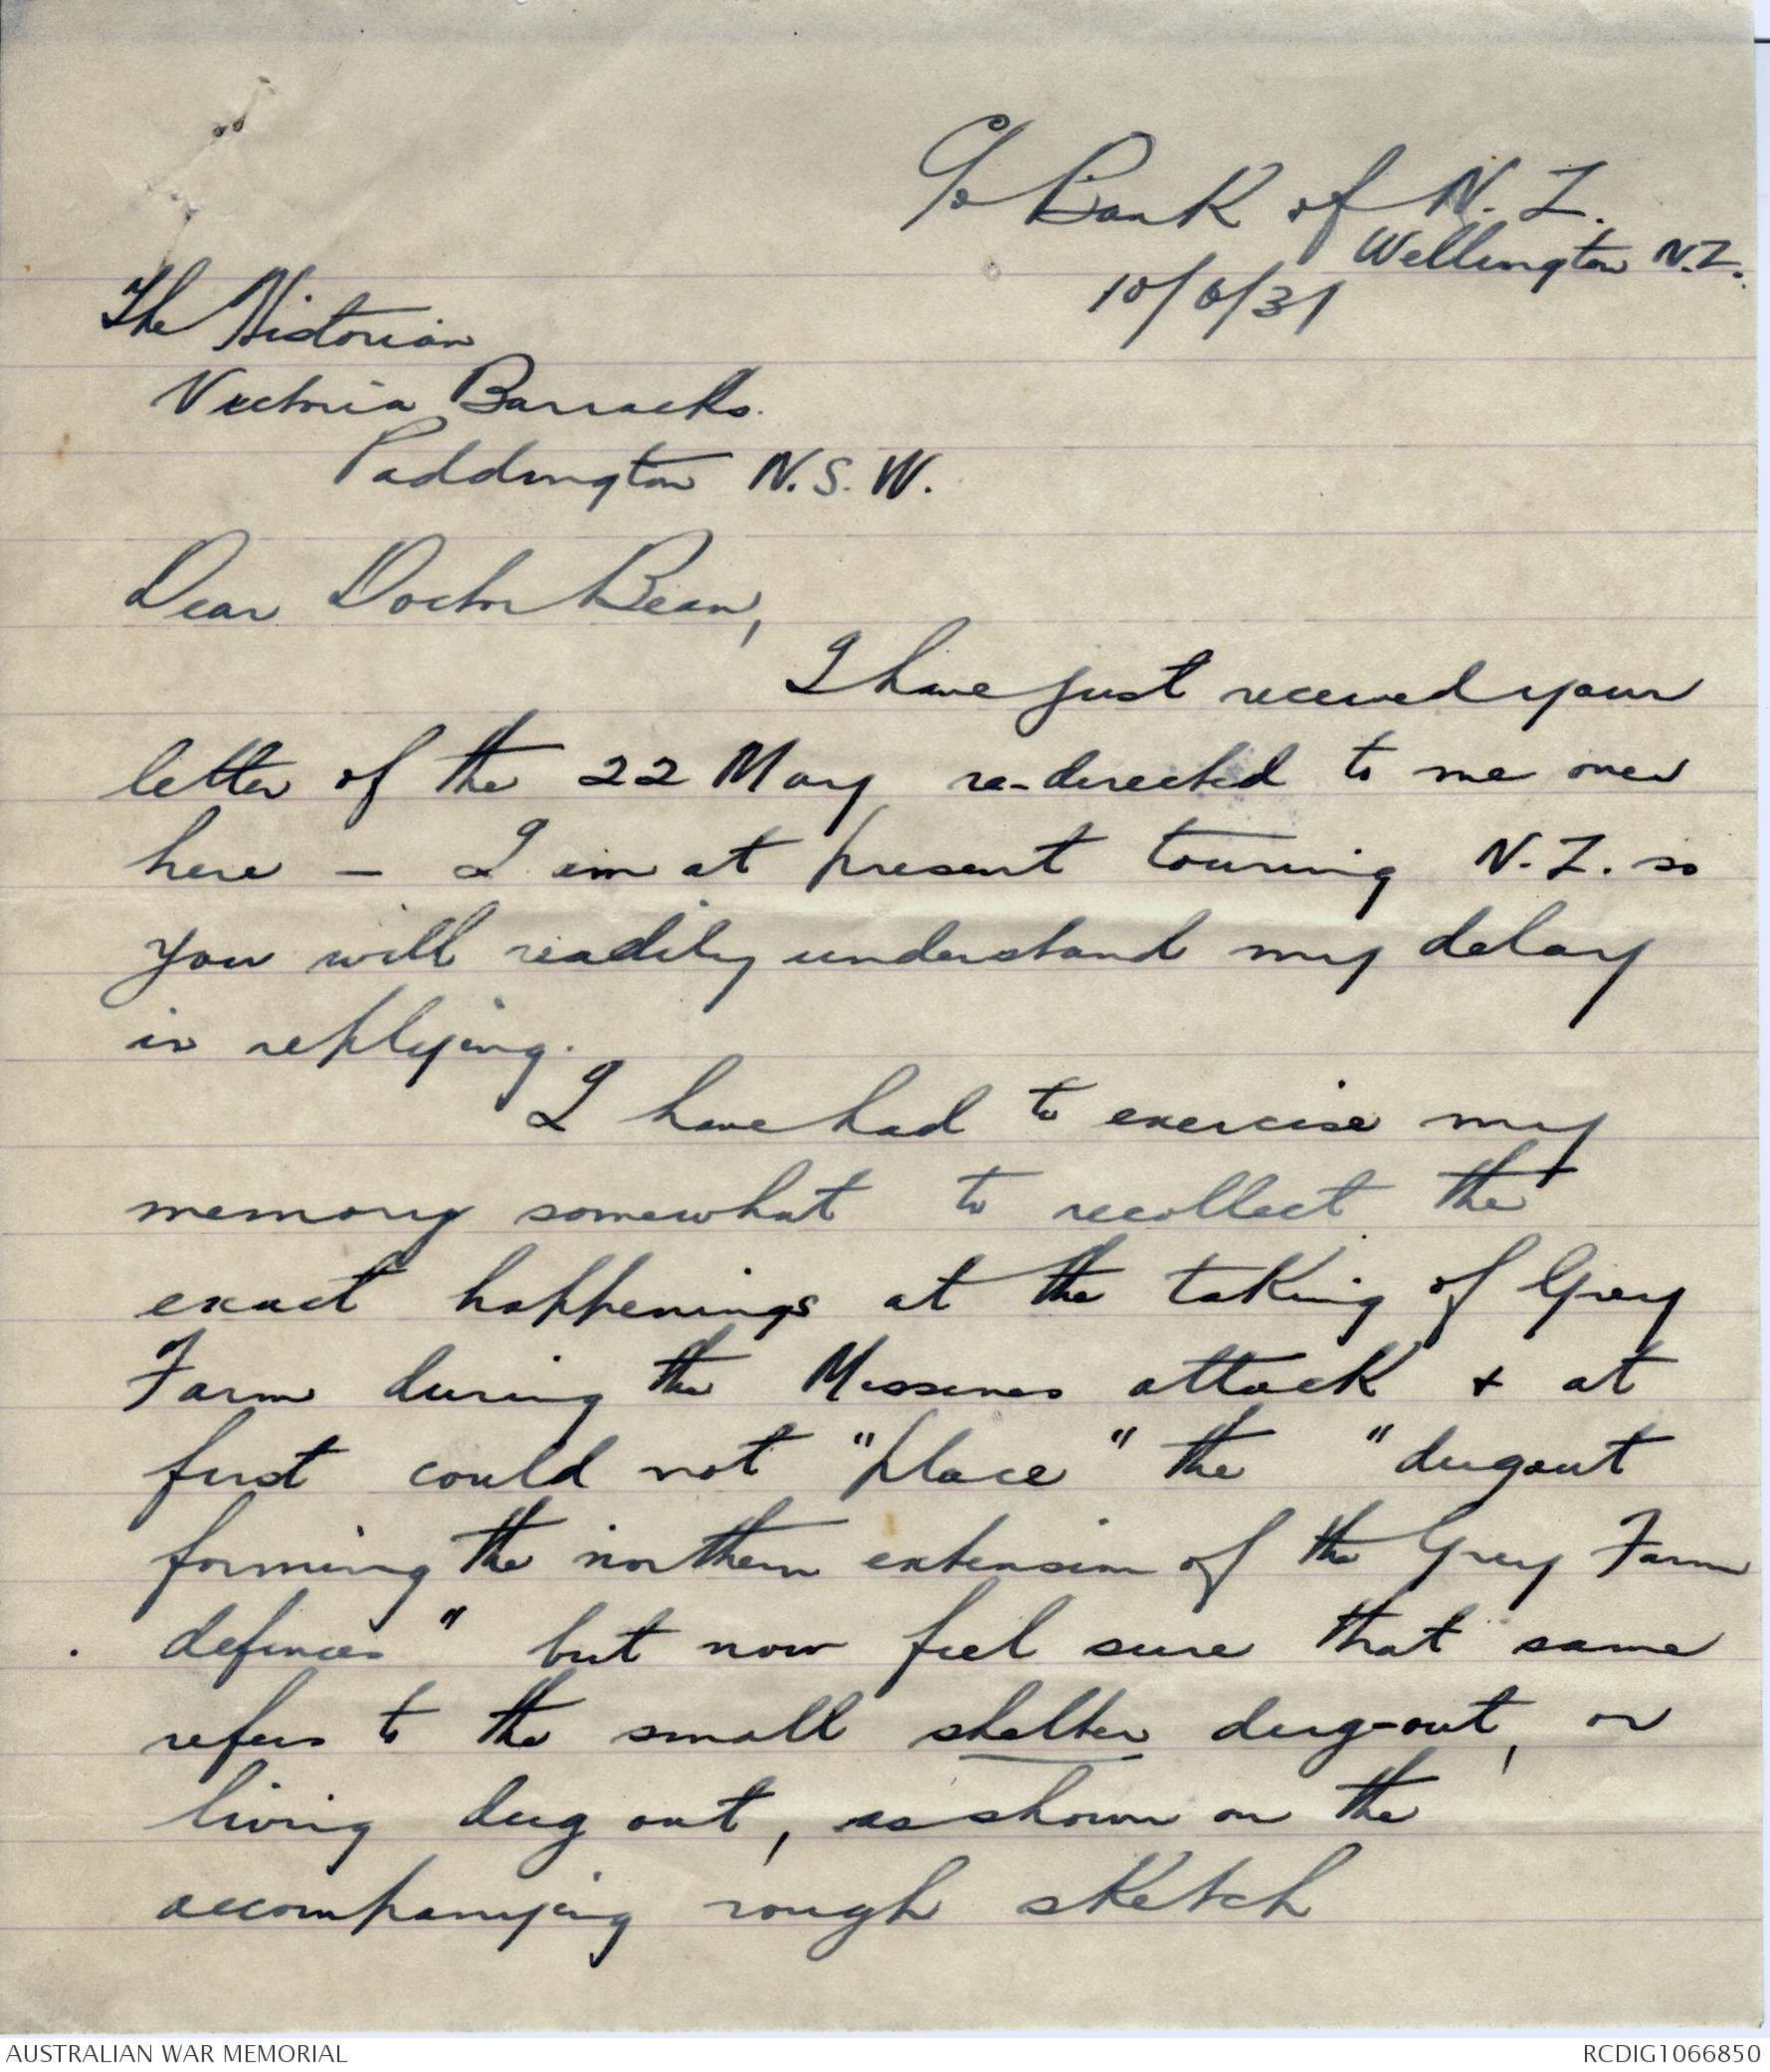 C/o Bank of N.Z.
Wellington N.Z.
10/6/31
The Historian
Victoria Barracks.
Paddington N.S.W.
Dear Doctor Bean,
I have just received your
letter of the 22 May re-directed to me over
here - I am at present touring N.Z. so
you will readily understand my delay
in replying.
I have had to exercise my
memory somewhat to recollect the
exact happenings at the taking of Grey
Farm during the Messines attack & at
first could not "place" the "dugout
forming the northern extension of the Grey Farm
defences" but now feel sure that same
refers to the small shelter dug-out, or
living dug out, as shown on the
accompanying rough sketch
AUSTRALIAN WAR MEMORIAL
RCDIG1066850